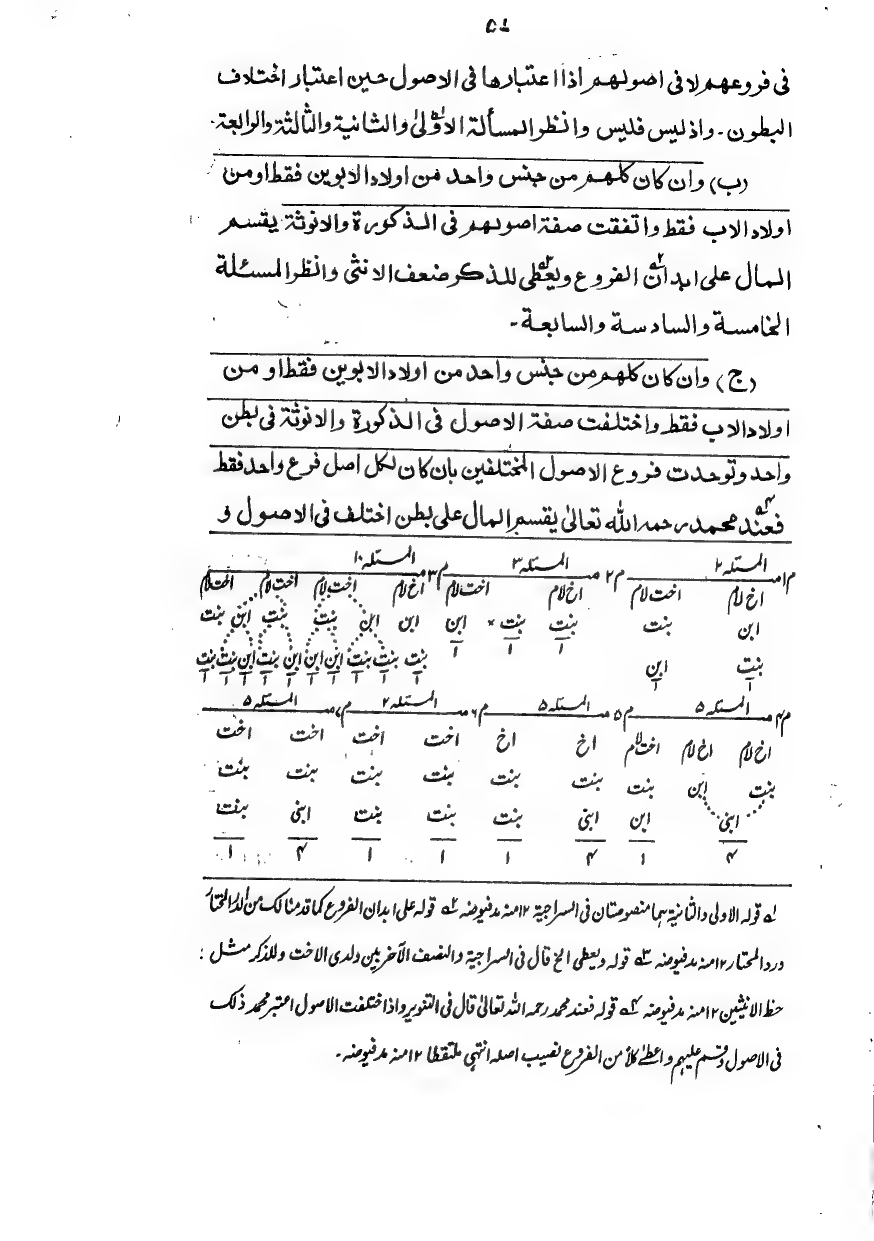 فی فروعهم لا فی اصولهم اذا اعتبارها فی الاصول حین اعتبار اختلاف
البطون۔ واذ لیس فلیس وانظر المسألة الاولیٰ والثانیة والثالثة والرابعة۔
(ب) وان کان کلهم من جنس واحد من اولاد الابوین فقط او من
اولاد الاب فقط واتفقت صفة اصولهم فی الذکورة والانوثة یقسم
المال علی ابدان الفروع ویعطی للذکر ضعف الانثی وانظر المسئلة
الخامسة والسادسة والسابعة۔
(ج) وان کان کلهم من جنس واحد من اولاد الابوین فقط او من
اولاد الاب فقط واختلفت صفة الاصول فی الذکورة والانوثة فی بطن
واحد وتوحدت فروع الاصول المختلفین بان کان لکل اصل فرع واحد فقط
فعند محمد رحمه الله تعالیٰ یقسم المال علی بطن اختلف فی الاصول و
م۱ المسئلہ ۲ م۲ المسئلہ ۳ م۳ المسئلہ ۱۰
اخ لام اخت لام اخ لام اخت لام اخ لام اخت لام اخت لام اخت لام
ابن بنت بنت بنت ابن ابن ابن بنت بنت ابن بنت
بنت ابن ۱ ۱ ۱ بنت بنت بنت ابن ابن ابن بنت ابن بنت بنت
۱ ۱ ۱ ۱ ۱ ۱ ۱ ۱ ۱ ۱ ۱ ۱
م۴ المسئلہ ۵ م۵ المسئلہ ۵ م۶ المسئلہ ۲ م۷ المسئلہ ۵
اخ لام اخ لام اخت لام اخ اخ اخت اخت اخت اخت
بنت ابن بنت بنت بنت بنت بنت بنت بنت
ابنی ابن ابنی بنت بنت بنت ابنی بنت
۴ ۱ ۴ ۱ ۱ ۱ ۴ ۱
۱؎ قوله الاولی والثانیة هما منصوصتان فی السراجیة ۱۲ منه مد فیوضه ۲؎ قوله علی ابدان الفروع کما قدمنا لک من الدر المختار
ورد المحتار ۱۲ منه مد فیوضه ۳؎ قوله ویعطی الخ قال فی السراجیة والنصف الآخر بین ولدی الاخت وللذکر مثل :
حظ الانثیین ۱۲ منه مد فیوضه ۴؎ قوله فعند محمد رحمه الله تعالیٰ قال فی التنویر واذا اختلفت الاصول اعتبر محمد ذلک
فی الاصول وقسم علیهم واعطیٰ کلا من الفروع نصیب اصله انتهی ملتقطا ۱۲ منه مد فیوضه۔